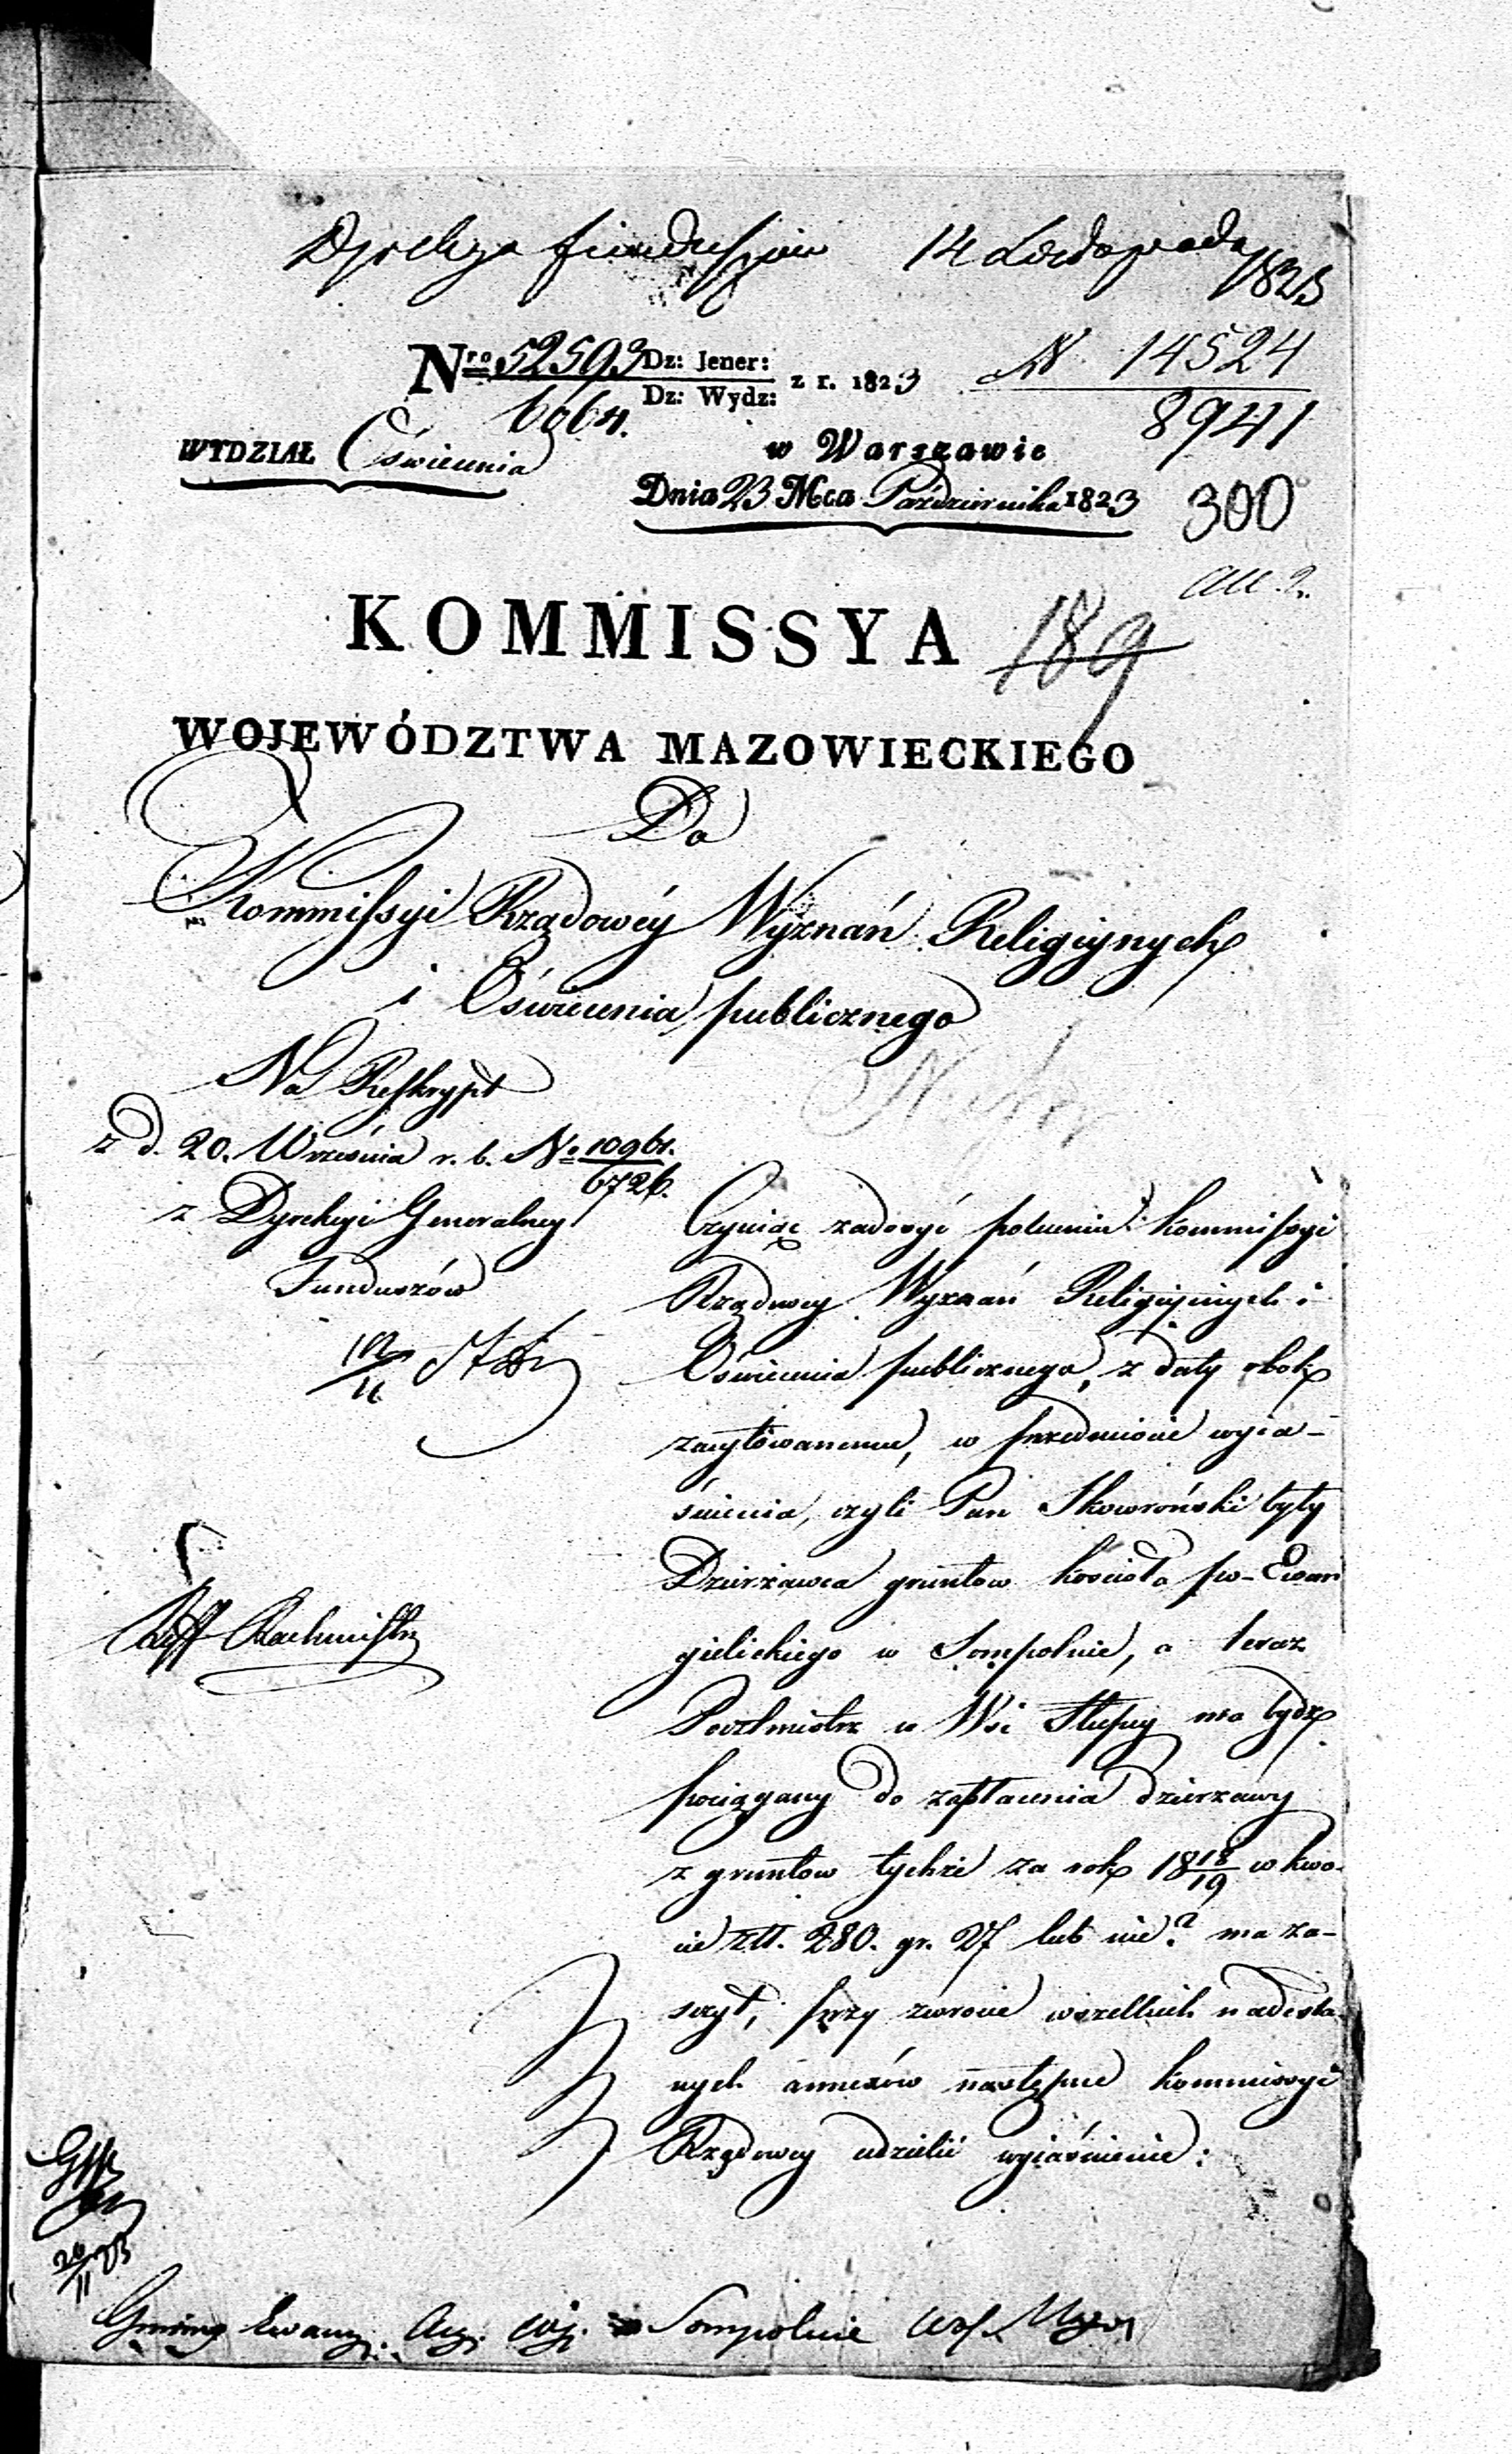 Dyrekcya funduszów 14 Listopada
1823
Nro 52593 Dz: Jener: z r. 1823 N 14524
6964. Dz: Wydz: 8941
WYDZIAŁ Oświecenia w Warszawie
Dnia 23 Mca Października 1823 300
All. 2.
KOMMISSYA 189
WOJEWÓDZTWA MAZOWIECKIEGO
Do
Kommissyi Rządowéy Wyznań Religiynych
i Oświecenia publicznego
Na Reskrypt
z d. 20. Września r. b. No 10961.
6726.
z Dyrekcyi Generalney
Funduszów
Czyniąc zadosyć poleceniu kommissyi
Rządowey Wyznań Religiynych i
Oświecenia publicznego, z daty obok
zacytowanemu, w przedmiocie wyia-
śnienia, czyli Pan Skowroński były
Dzierżawca gruntow kościoła po-Ewan
gielickiego w Sompolnie, a teraz
Pocztmistrz w Wsi Słupcy ma bydź
pociągany do zapłacenia dzierzawy
z gruntow tychże za rok 18 18/19 w kwo-
cie złl. 280. gr. 27 lub nie? ma za-
szczyt, przy zwrocie wszelkich nadesła-
nych annexów następne kommissyi
Rządowey udzielić wyiaśnienie:
Rachmistrz
20/11 23
Gminy Ewang. Aug. w Sompolnie Woj. Mazow